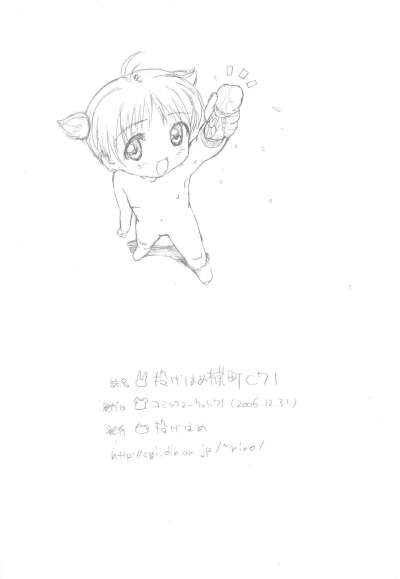 誌名 投げはめ横町C71
発行日 コミックマーケット71 (2006.12.31)
発行 投げはめ